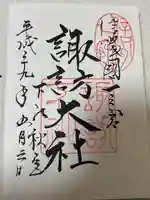 信濃國一之宮
諏訪大社
下社秋宮
平成 九年 月 日